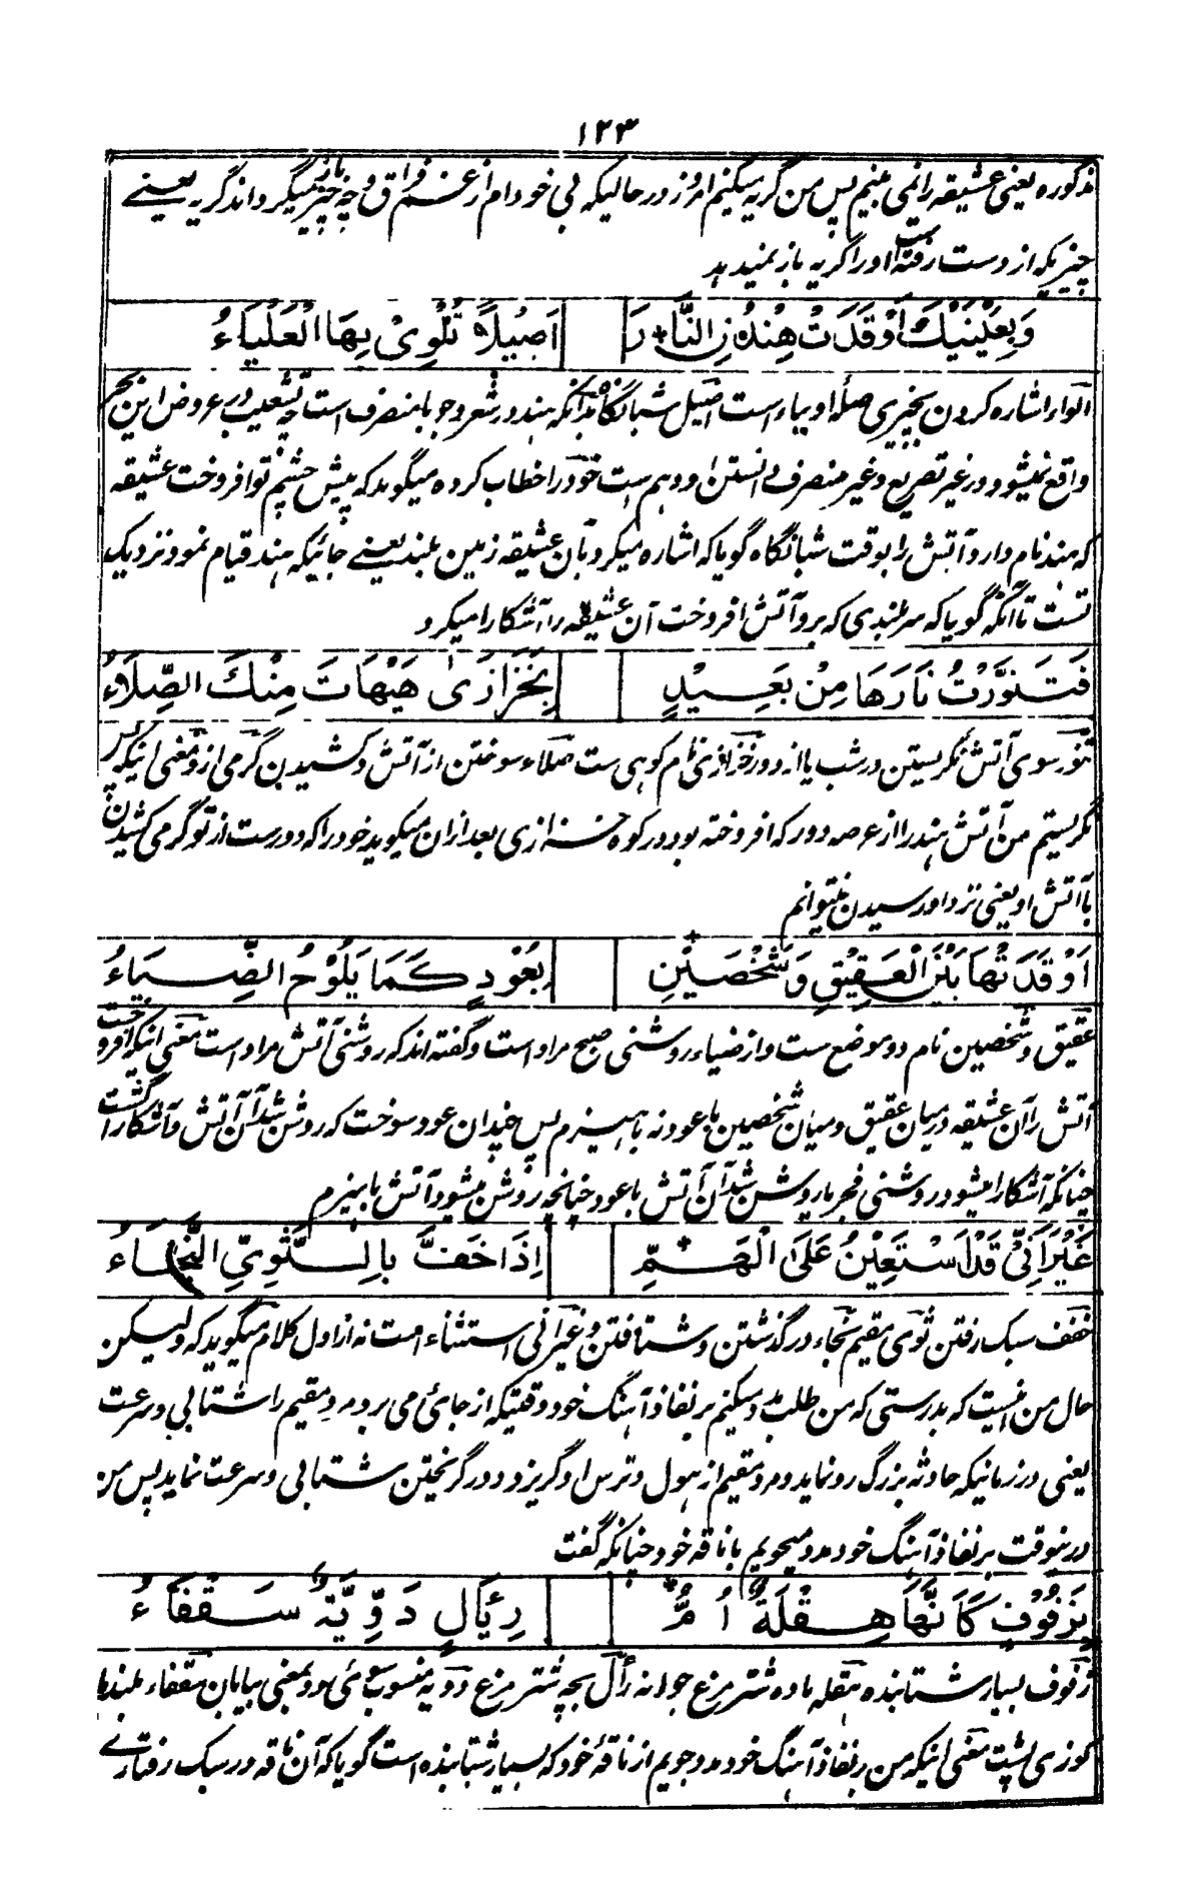 ١٢٣
مذکوره یعنی عشیقه را نمی بینم پس من گریه میکنم امروز در حالیکه بی خود ام از غم فراق و چه چیز باز میگرداند گریه یعنے
چیزیکه از دست رفته است او را گریه باز نمیدهد
وَبِعَيْنَيْكَ اَوْقَدَتْ هِنْدُنِ النَّارَ اَصِيْلًا تُلْوِىْ بِهَا الْعَلْيَاءُ
الواء اشاره کردن بچیزی صلهٔ او بباء است اصیل شبانگاه بدانکه هند در شعر وجوبا منصرف است چه تشعیث در عروض این بحر
واقع نمیشود در غیر تصریع و غیر منصرف دانستن او وهم ست خود را خطاب کرده میگوید که پیش چشم تو افروخت عشیقه
که هند نام دارد آتش را بوقت شبانگاه گویا که اشاره میکرد بآن عشیقه زمین بلند یعنے جائیکه هند قیام نمود نزدیک
تست تا آنکه گویا که سر بلندی که برو آتش افروخت آن عشیقه را آشکارا میکرد
فَتَنَوَّرْتُ نَارَهَا مِنْ بَعِيْدٍ بِخَزَازَىٰ هَيْهَاتَ مِنْكَ الصِّلَاءُ
تنور سوی آتش نگریستن در شب یا از دور خزازی نام کوهی ست صلاء سوختن از آتش و کشیدن گرمی از و معنی اینکه پس
نگریستم من آتش هند را از عرصه دور که افروخته بود در کوه خزازی بعد ازان میگوید خود را که دورست از تو گرمی کشیدن
بآتش او یعنی نزد او رسیدن نمیتوانم
اَوْقَدَتْهَا بَيْنَ الْعَقِيْقِ وَشَخْصَيْنِ بِعُوْدٍ كَمَا يَلُوْحُ الضِّيَاءُ
عقیق و شخصین نام دو موضع ست و از ضیاء روشنی صبح مراد است و گفته اند که روشنی آتش مراد است معنی اینکه افروخت
آتش را آن عشیقه درمیان عقیق و میان شخصین با عود نه با هیزم پس چندان عود سوخت که روشن شد آن آتش و آشکارا گشت
چنانکه آشکارا میشود روشنی فجر یا روشن شد آن آتش با عود چنانچه روشن میشود آتش با هیزم
غَيْرَ اَنِّىْ قَدْ اَسْتَعِيْنُ عَلَى الْهَمِّ اِذَا خَفَّ بِالثَّوِىِّ النَّجَاءُ
خفف سبک رفتن ثوی مقیم نجاء درگذشتن و شتافتن و غیر انی استثناء است نه از اول کلام میگوید که ولیکن
حال من اینست که بدرستی که من طلب مدد میکنم بر نفاذ آهنگ خود وقتیکه از جای می برد مرد مقیم را شتابی و سرعت
یعنی در زمانیکه حادثه بزرگ رو نماید و مرد مقیم از هول و ترس او گریزد و در گریختن شتابی و سرعت نماید پس من
درینوقت بر نفاذ آهنگ خود مدد میجویم با ناقه خود چنانکه گفت
بِزَفُوْفٍ كَاَنَّهَا هِقْلَةٌ اُمُّ رِئَالٍ دَوِّيَّةٌ سَقْفَاءُ
زفوف بسیار شتابنده هقله ماده شتر مرغ جوانه رأل بچه شتر مرغ دویه منسوب بسوی دو بمعنی بیابان سقفاء بلند با
کوزی پشت معنی اینکه من بر نفاذ آهنگ خود مدد جویم از ناقهٔ خود که بسیار شتابنده است گویا که آن ناقه در سبک رفتاری